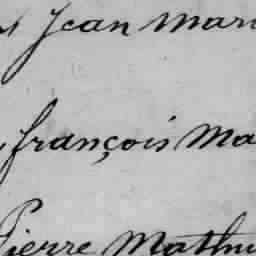 Jean Mari
françois Ma
Pierre Mathu